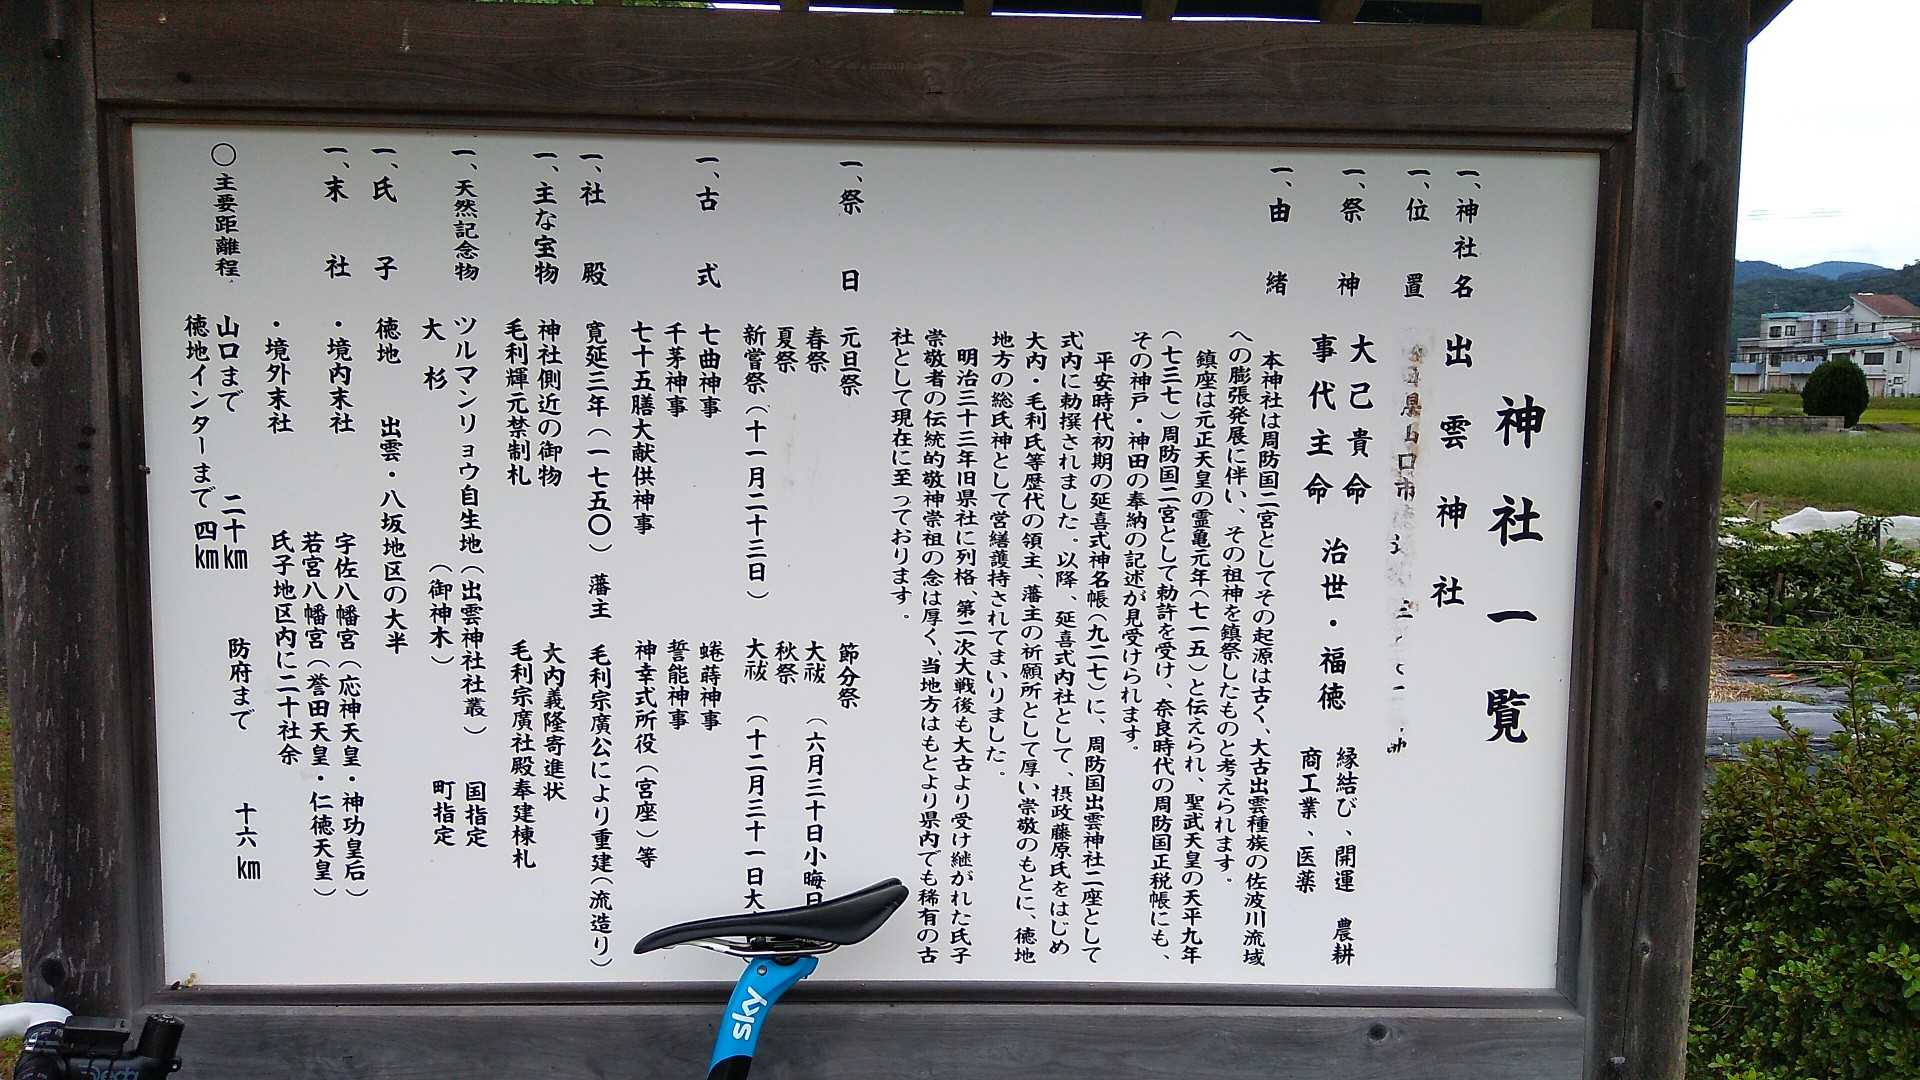 神社一覧
一、神社名 出雲神社
一、位置 山口市
一、祭神 大己貴命 治世・福徳 縁結び、開運 農耕
事代主命 商工業、医薬
一、由緒 本神社は周防国二宮としてその起源は古く、大古出雲種族の佐波川流域
への膨張発展に伴い、その祖神を鎮祭したものと考えられます。
鎮座は元正天皇の霊亀元年(七一五)と伝えられ、聖武天皇の天平九年
(七三七)周防国二宮として勅許を受け、奈良時代の周防国正税帳にも、
その神戸・神田の奉納の記述が見受けられます。
平安時代初期の延喜式神名帳(九二七)に、周防国出雲神社二座として
式内に勅撰されました。以降、延喜式内社として、摂政藤原氏をはじめ
大内・毛利氏等歴代の領主、藩主の祈願所として厚い崇敬のもとに、徳地
地方の総氏神として営繕護持されてまいりました。
明治三十三年旧県社に列格、第二次大戦後も大古より受け継がれた氏子
崇敬者の伝統的敬神崇祖の念は厚く、当地方はもとより県内でも稀有の古
社として現在に至っております。
一、祭日 元旦祭 節分祭
春祭 大祓(六月三十日小晦日
夏祭 秋祭
新嘗祭(十一月二十三日) 大祓(十二月三十一日大
一、古式 七曲神事 蜷蒔神事
千茅神事 誓能神事
七十五膳大献供神事 神幸式所役(宮座)等
一、社殿 寛延三年(一七五〇)藩主 毛利宗廣公により重建(流造り)
一、主な宝物 神社側近の御物 大内義隆寄進状
毛利輝元禁制札 毛利宗廣社殿奉建棟札
一、天然記念物 ツルマンリョウ自生地(出雲神社社叢) 国指定
大杉 (御神木) 町指定
一、氏子 徳地 出雲・八坂地区の大半
一、末社 ・境内末社 宇佐八幡宮(応神天皇・神功皇后)
若宮八幡宮(誉田天皇・仁徳天皇)
・境外末社 氏子地区内に二十社余
〇主要距離程 山口まで 二十km 防府まで 十六km
徳地インターまで 四km
sky